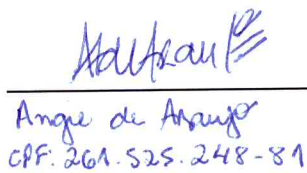 Angre de Araujo
CPF: 261.525.248-81